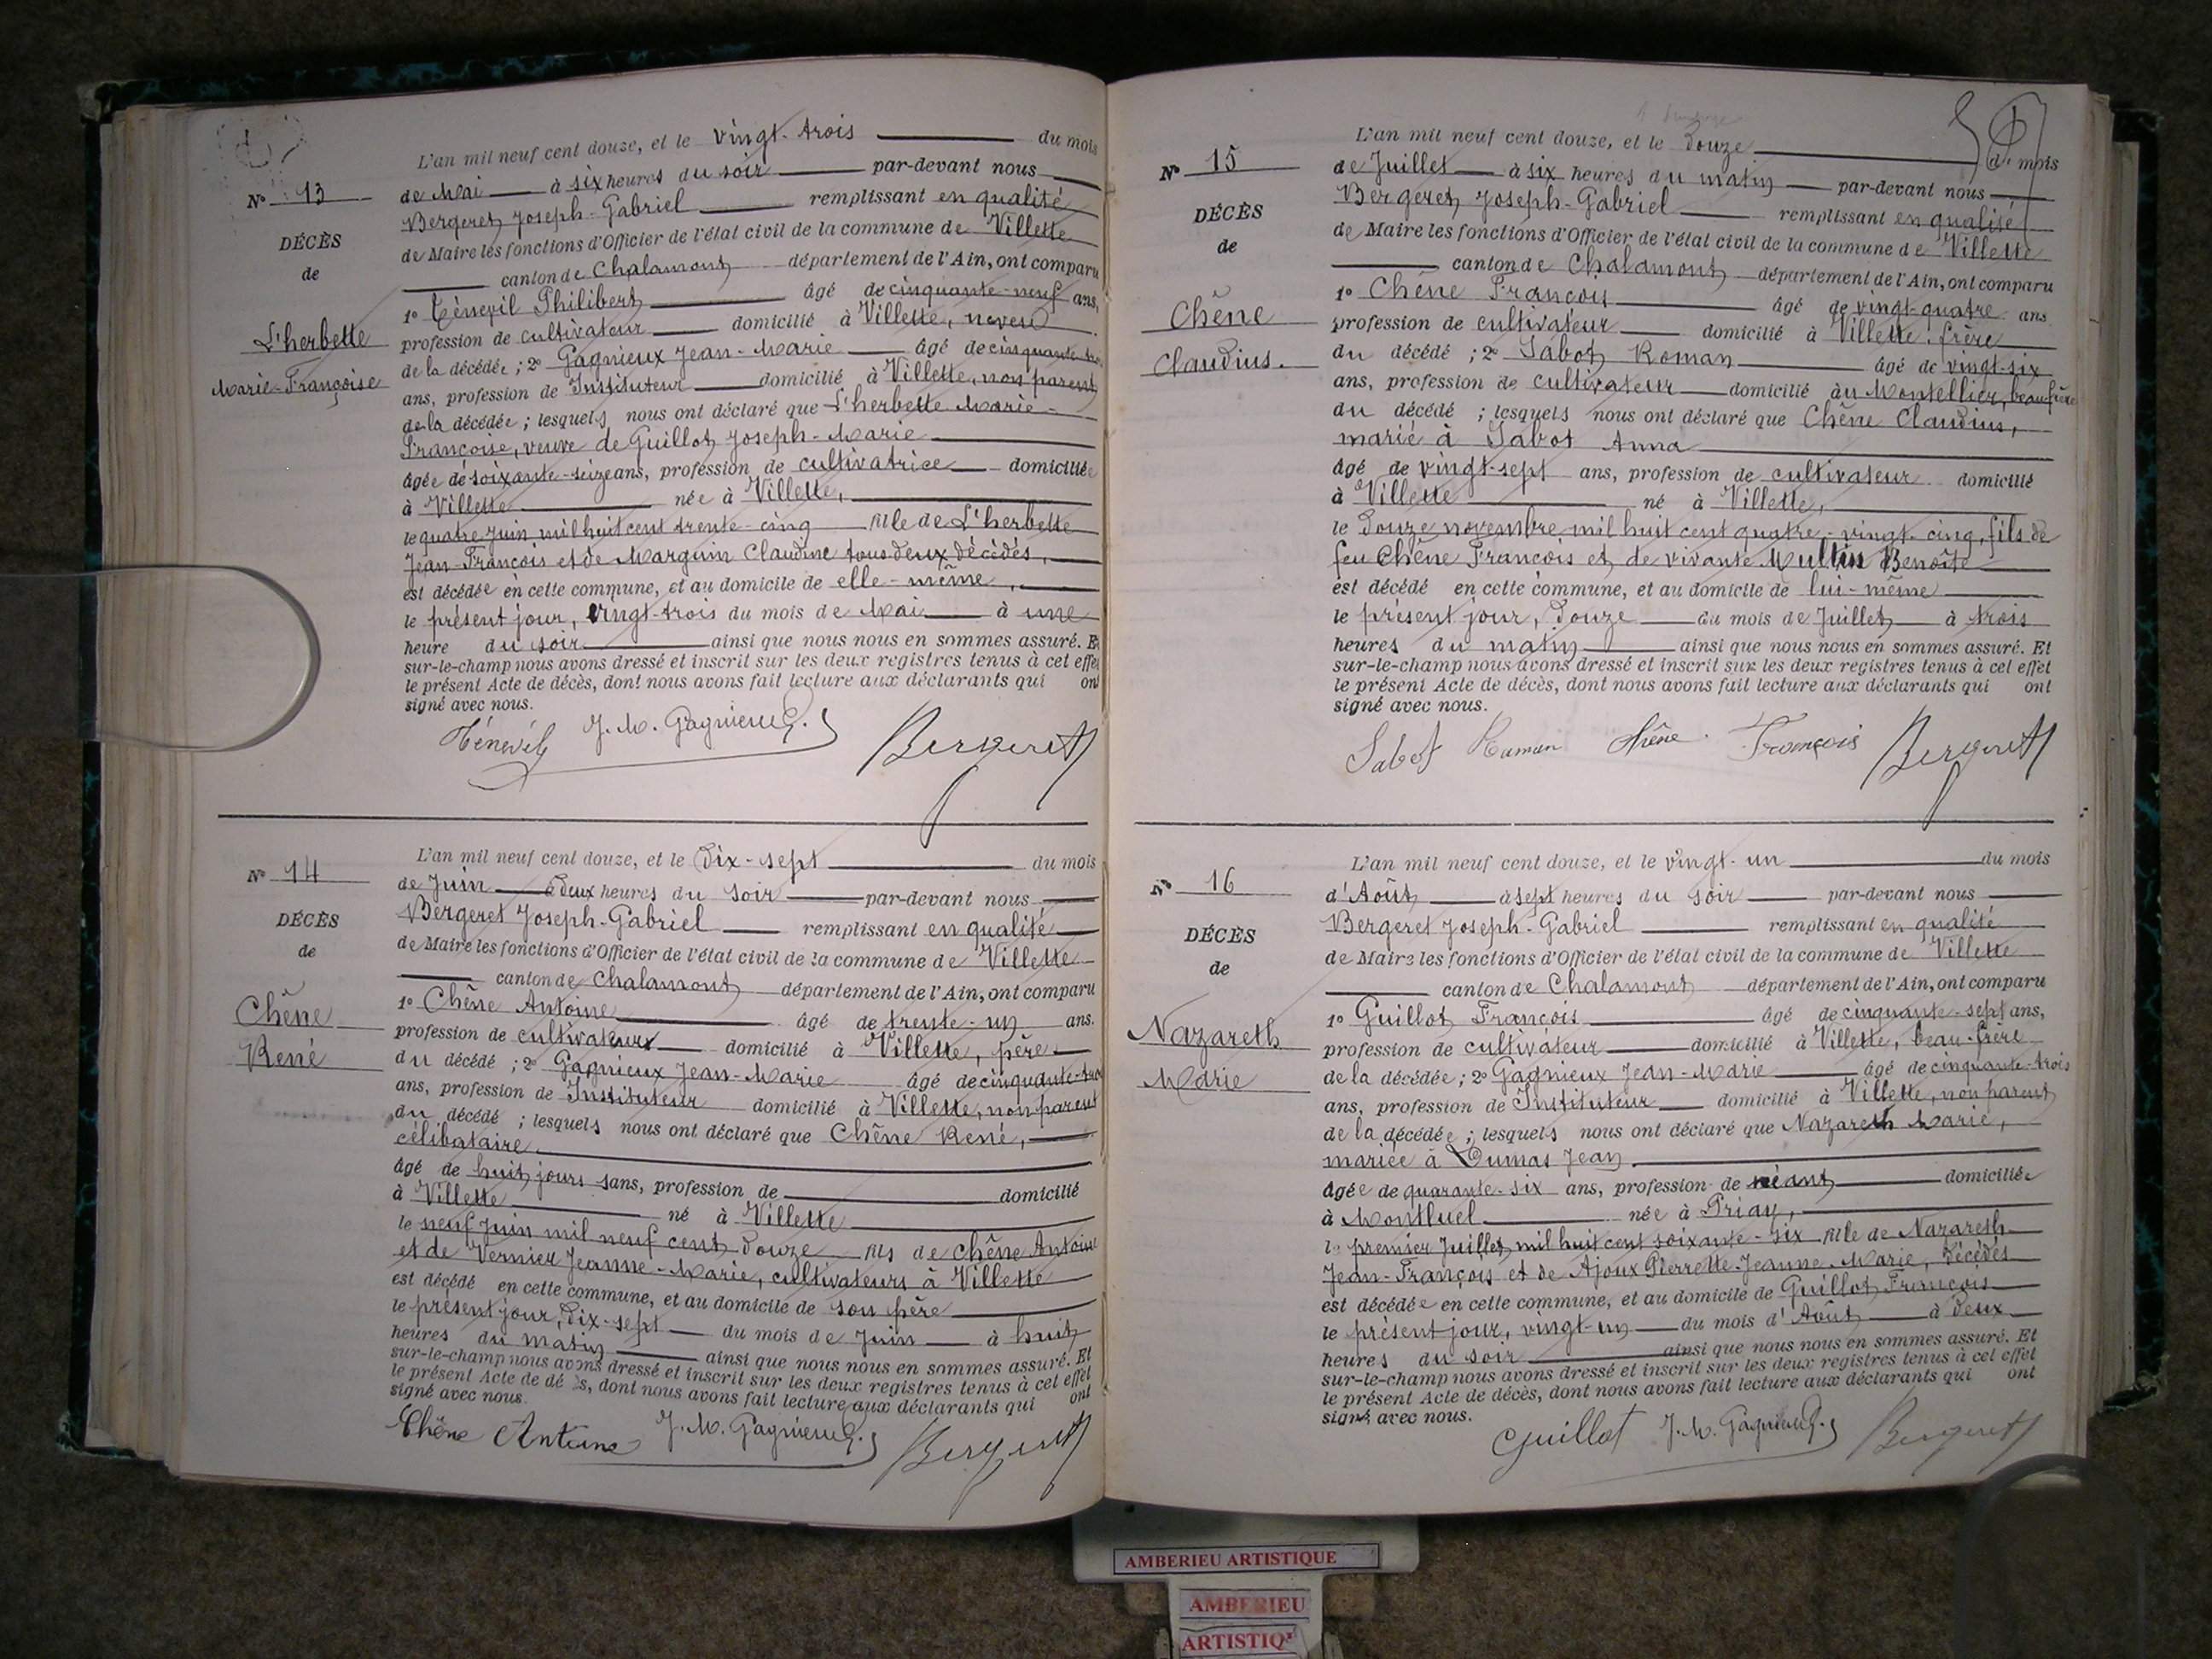 N° 13
DÉCÈS
de
L'herbette
Marie-Françoise
L'an mil neuf cent douze, et le vingt-trois du mois
de Mai à six heures du soir par-devant nous
Bergeret Joseph-Gabriel remplissant en qualité
de Maire les fonctions d'Officier de l'état civil de la commune de Villette
canton de Chalamont département de l'Ain, ont comparu
1° Ténevil Philibert âgé de cinquante-neuf ans,
profession de cultivateur domicilié à Villette, neveu
de la décédée ; 2° Gagnieux Jean-Marie âgé de cinquante
ans, profession de Instituteur domicilié à Villette, non parent
de la décédée ; lesquels nous ont déclaré que L'herbette Marie-
Françoise, veuve de Guillot Joseph-Marie
âgée de soixante-seize ans, profession de cultivatrice domiciliée
à Villette née à Villette,
le quatre Juin mil huit cent trente-cinq fille de L'herbette
Jean-François et de Marguin Claudine tous deux décédés,
est décédée en cette commune, et au domicile de elle-même,
le présent jour, vingt-trois du mois de Mai à une
heure du soir ainsi que nous nous en sommes assuré. Et
sur-le-champ nous avons dressé et inscrit sur les deux registres tenus à cet effet
le présent Acte de décès, dont nous avons fait lecture aux déclarants qui ont
signé avec nous.
Ténevil J. M. Gagnieux Bergeret
N° 14
DÉCÈS
de
Chêne
René
L'an mil neuf cent douze, et le Dix-sept du mois
de Juin à deux heures du soir par-devant nous
Bergeret Joseph-Gabriel remplissant en qualité
de Maire les fonctions d'Officier de l'état civil de la commune de Villette
canton de Chalamont département de l'Ain, ont comparu
1° Chêne Antoine âgé de trente-un ans.
profession de cultivateur domicilié à Villette, père
du décédé ; 2° Gagnieux Jean-Marie âgé de cinquante-
ans, profession de Instituteur domicilié à Villette, non parent
du décédé ; lesquels nous ont déclaré que Chêne René,
célibataire
âgé de huit jours sans, profession de domicilié
à Villette né à Villette
le neuf Juin mil neuf cent douze fils de Chêne Antoine
et de Vernier Jeanne-Marie, cultivateurs à Villette
est décédé en cette commune, et au domicile de son père
le présent jour, Dix-sept du mois de Juin à huit
heures du matin ainsi que nous nous en sommes assuré. Et
sur-le-champ nous avons dressé et inscrit sur les deux registres tenus à cet effet
le présent Acte de décès, dont nous avons fait lecture aux déclarants qui ont
signé avec nous.
Chêne Antoine J. M. Gagnieux Bergeret
N° 15
DÉCÈS
de
Chêne
Claudius.
L'an mil neuf cent douze, et le Douze du mois
de Juillet à six heures du matin par-devant nous
Bergeret Joseph-Gabriel remplissant en qualité
de Maire les fonctions d'Officier de l'état civil de la commune de Villette
canton de Chalamont département de l'Ain, ont comparu
1° Chêne François âgé de vingt-quatre ans
profession de cultivateur domicilié à Villette, frère
du décédé ; 2° Sabot Roman âgé de vingt-six
ans, profession de cultivateur domicilié au Montellier, beau-frère
du décédé ; lesquels nous ont déclaré que Chêne Claudius,
marié à Sabot Anna
âgé de vingt-sept ans, profession de cultivateur domicilié
à Villette né à Villette,
le Douze novembre mil huit cent quatre-vingt-cinq, fils de
feu Chêne François et de vivante Multin Benoîte
est décédé en cette commune, et au domicile de lui-même
le présent jour, Douze du mois de Juillet à trois
heures du matin ainsi que nous nous en sommes assuré. Et
sur-le-champ nous avons dressé et inscrit sur les deux registres tenus à cet effet
le présent Acte de décès, dont nous avons fait lecture aux déclarants qui ont
signé avec nous.
Sabot Roman Chêne François Bergeret
N° 16
DÉCÈS
de
Nazareth
Marie
L'an mil neuf cent douze, et le vingt-un du mois
d'Août à sept heures du soir par-devant nous
Bergeret Joseph-Gabriel remplissant en qualité
de Maire les fonctions d'Officier de l'état civil de la commune de Villette
canton de Chalamont département de l'Ain, ont comparu
1° Guillot François âgé de cinquante-sept ans,
profession de cultivateur domicilié à Villette, beau-frère
de la décédée ; 2° Gagnieux Jean-Marie âgé de cinquante-trois
ans, profession de Instituteur domicilié à Villette, non parent
de la décédée ; lesquels nous ont déclaré que Nazareth Marie,
mariée à Dumas Jean
âgée de quarante-six ans, profession de néant domiciliée
à Montluel née à Priay,
le premier Juillet mil huit cent soixante-six fille de Nazareth
Jean-François et de Ajoux Pierrette-Jeanne-Marie, décédés
est décédée en cette commune, et au domicile de Guillot François
le présent jour, vingt-un du mois d'Août à deux
heures du soir ainsi que nous nous en sommes assuré. Et
sur-le-champ nous avons dressé et inscrit sur les deux registres tenus à cet effet
le présent Acte de décès, dont nous avons fait lecture aux déclarants qui ont
signé avec nous.
Guillot J. M. Gagnieux Bergeret
AMBERIEU ARTISTIQUE
AMBERIEU
ARTISTIQ